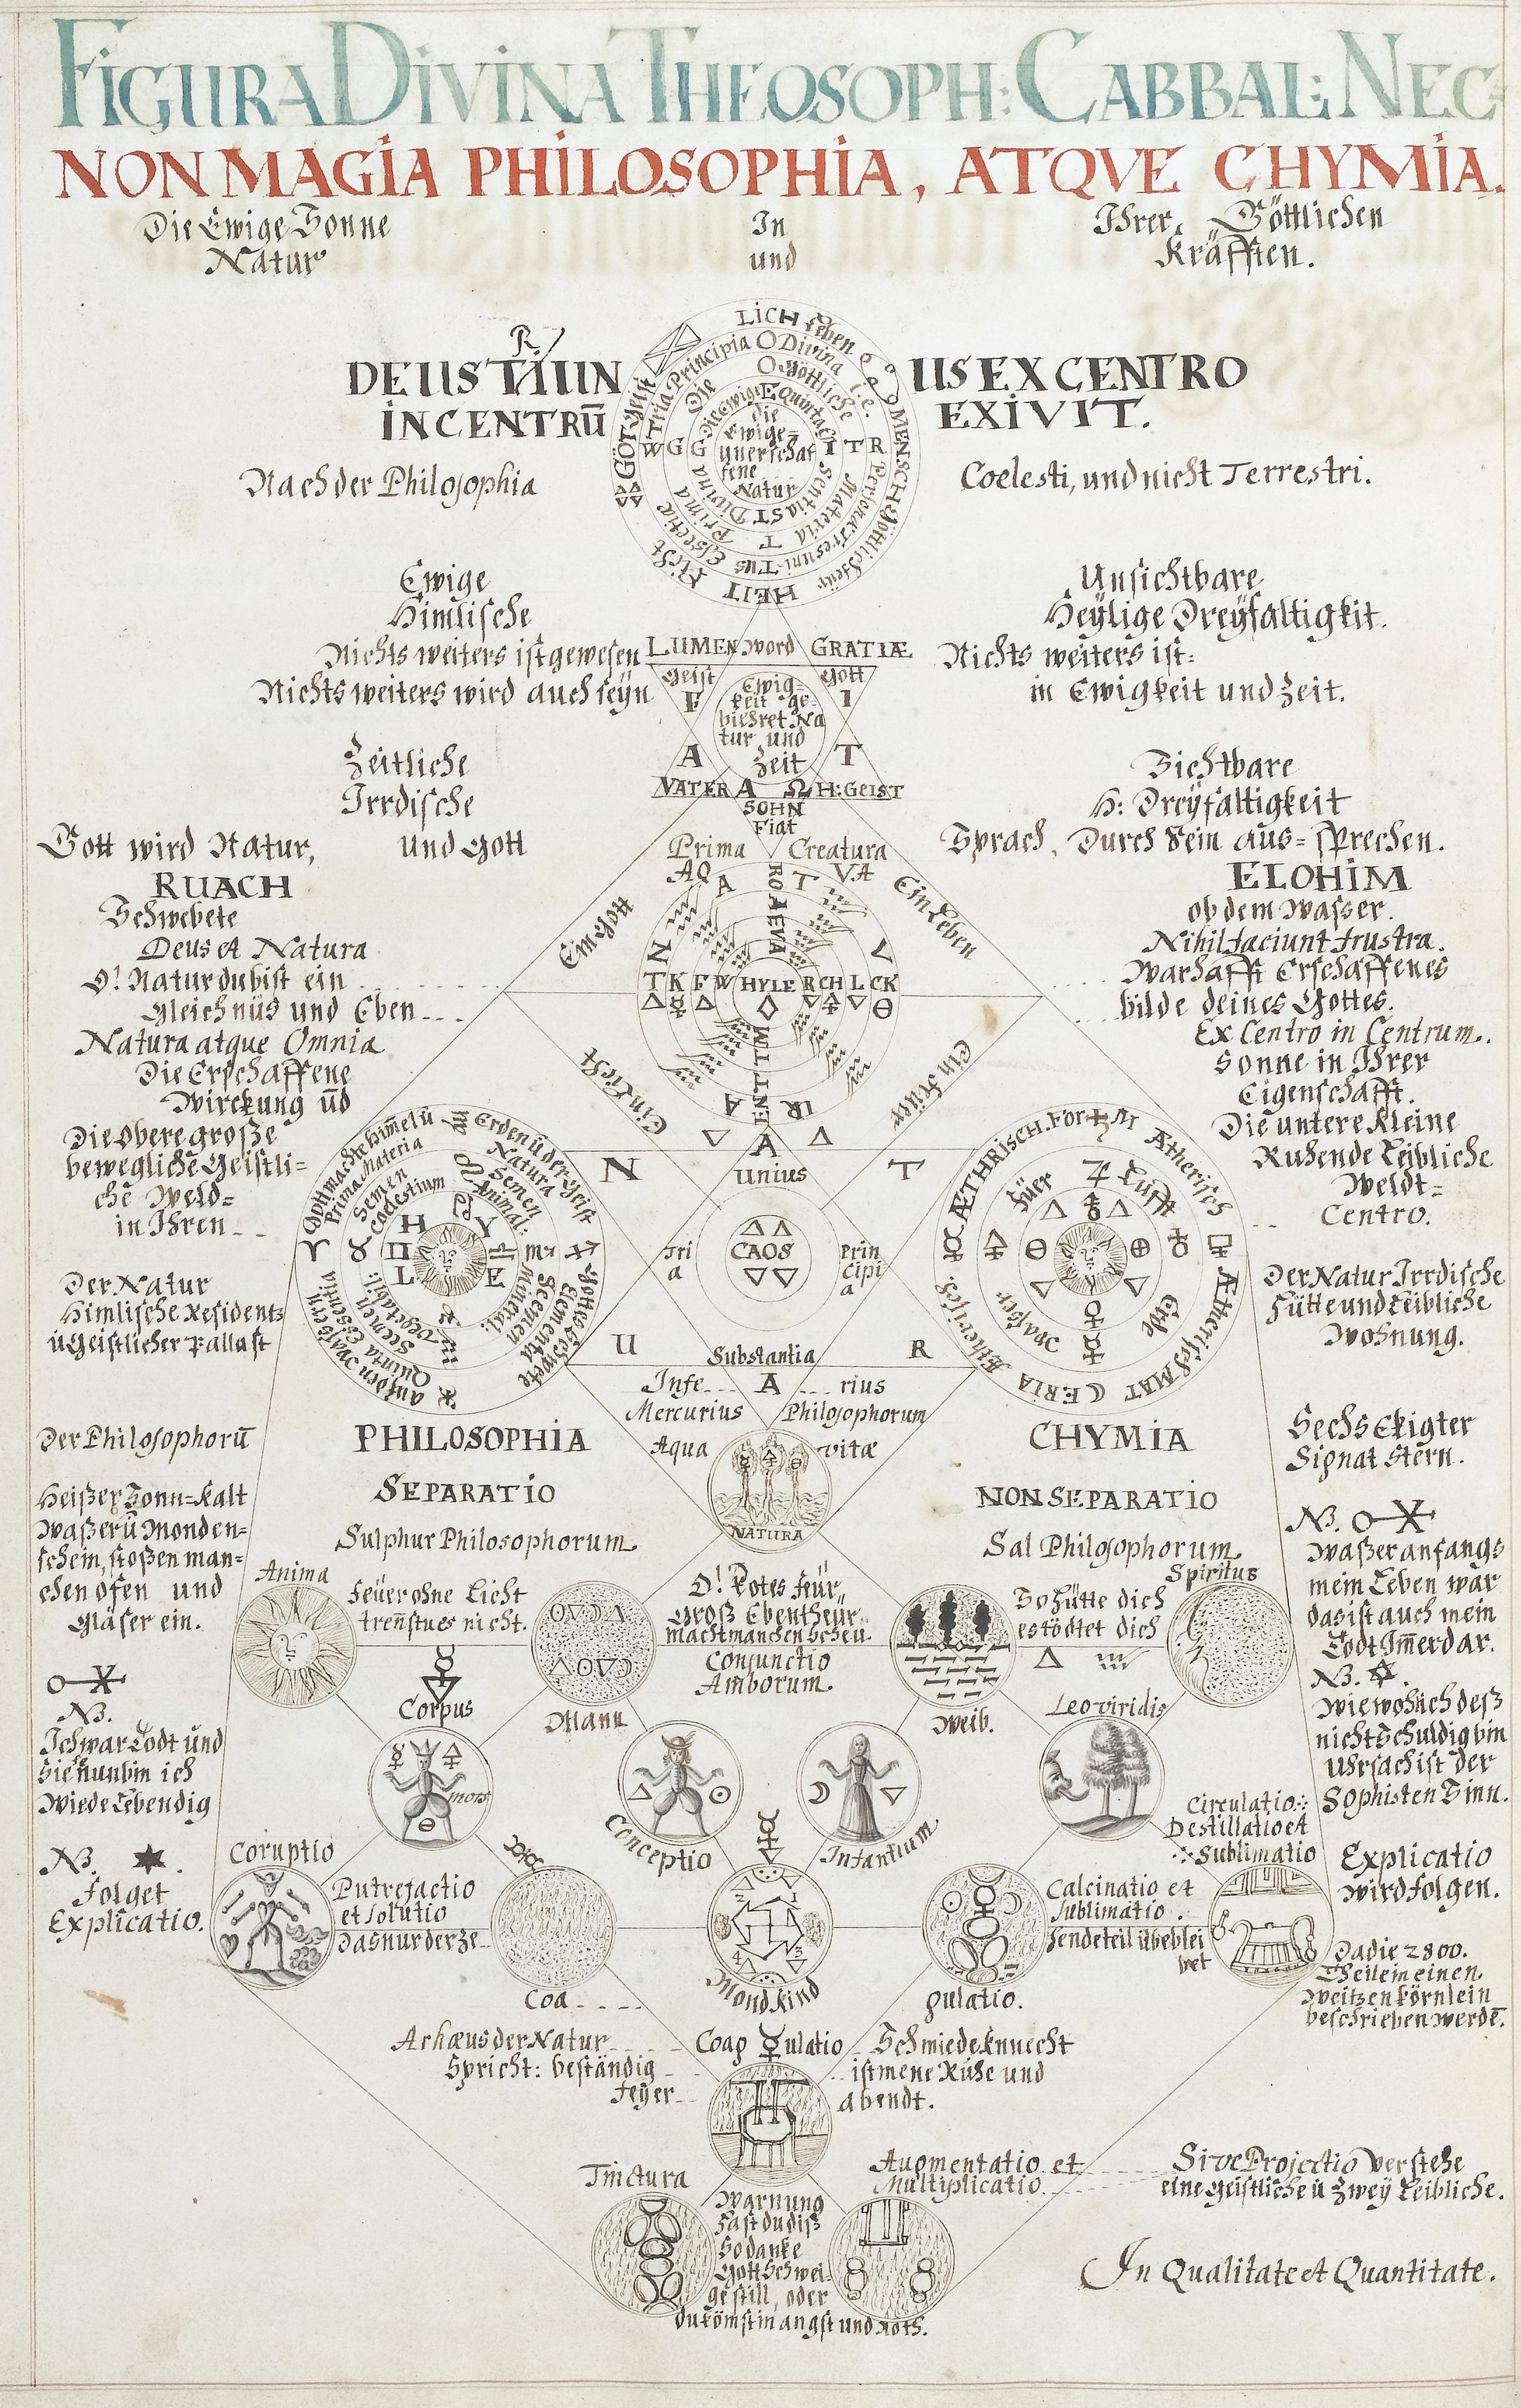 FIGURA DIVINA THEOSOPH: CABBAL: NEC-
NON MAGIA PHILOSOPHIA, ATQVE CHYMIA.
Die Ewige Sonne In Ihrer Göttlichen
Natur und Kräfften.
DEUS TRIUN US EX CENTRO
IN CENTRŪ EXIVIT.
Nach der Philosophia Coelesti, und nicht Terrestri.
LICH Leben
MENSCH
HEIT
Licht
GÖT Geist
Tria Principia Divina i.e.
Personæ Tres uni Tus Essetiæ
Die Göttliche
Materia Prima
Die Ewige Equinta
Divina
Die
Ewige-
unerschaf
fene
Natur
Ewige Unsichtbare
Himlische Heÿlige Dreÿfaltigkit.
Nichts weiters ist gewesen Nichts weiters ist:
Nichts weiters wird auch seÿn in Ewigkeit und Zeit.
LUMEN word GRATIÆ
Geist Gott
F I
A T
Ewig-
keit ge-
biehret Na
tur und
Zeit
VATER A Ω H: GEIST
SOHN
Fiat
Zeitliche Sichtbare
Irrdische H: Dreÿfaltigkeit
Gott wird Natur, und Gott Sprach, Durch Sein aus-sprechen.
RUACH ELOHIM
Schwebete ob dem Wasser.
Deus et Natura Nihil faciunt frustra.
O! Natur du bist ein Warhafft Erschaffenes
Gleichnüs und Eben- bilde deines Gottes.
Natura atque Omnia Ex Centro in Centrum.
Die Erschaffene Sonne in Ihrer
Wirckung ūd Eigenschafft.
Die obere große Die untere Kleine
bewegliche Geistli- Ruhende Leibliche
che Weld- Weldt-
in Ihren Centro.
Prima Creatura
AQ VA
Ein Gott
Ein Leben
Ein Licht
Ein Feüer
T K F W HYLE R CH L CK
N T
A
Unius
Tri
a
CAOS
Prin
cipi
a
U R
Substantia
Infe A rius
Mercurius Philosophorum
Aqua vitæ
NATURA
Gott machte Himel ü Erden ü der Geist
Prima Materia
Natura
Semen
Coelestium
Semen
Animal:
H Y L E
Semen
Mineral:
Elementa
Quinta Essentia
ÆTHRISCH. FOR M
Ætherisch
Ætherisch MATERIA
Ætherisch.
Füer Lüfft
Erde
Wasser
Der Natur
Himlische Residentz
ü Geistlicher Pallast
Der Natur Irrdische
Hütte und Leibliche
Wohnung.
Der Philosophorū PHILOSOPHIA CHYMIA Sechs Ekigter
Signat Stern.
SEPARATIO NON SEPARATIO
Sulphur Philosophorum Sal Philosophorum
Heißer Sonn-Kalt
Waßer ū Monden-
schein, stoßen man-
chen ofen und
Gläser ein.
NB.
Waßer anfangs
mein Leben war
das ist auch mein
Todt Imerdar.
NB.
Wiewohl ich deß
nicht Schuldig bin
Uhrsach ist der
Sophisten Sinn.
Anima
Feüer ohne Licht
treñst ues nicht.
O! Rotes Feür,
Groß Ebentheür
macht manchen Scheu.
Conjunctio
Amborum.
So hütte dich
es tödtet dich
Spiritus
NB.
Ich war Todt und
Sie nun bin ich
Wieder Lebendig
Corpus
Mann
Weib.
Leo viridis
mors
Conceptio
Infantium
Circulatio
Destillatio et
Sublimatio
NB.
Folget
Explicatio.
Coruptio
Putrefactio
et Solutio
Das nur der Ze-
Calcinatio et
Sublimatio.
Explicatio
wird folgen.
Mondkind
Coa- gulatio.
Da die 2800.
Theil ein einen
Weitzen Körnlein
beschrieben werdē.
Arhæus der Natur Coag ulatio Schmiede Knnecht
Spricht: beständig ist mene Ruhe und
Feÿer abendt.
Tinctura
Augmentatio et
Multiplicatio
Sive Projectio verstehe
eine Geistliche ü Zweÿ Leibliche.
Warnung
Hast du diß
So danke
Gott Schwei-
ge still, oder
du kömst in angst und Noth.
In Qualitate et Quantitate.